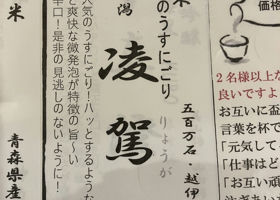 価格
米
青森県産
人気のうすにごり!ハッとするような
と爽快な微発泡が特徴の旨〜い
辛口!是非の見逃しのないように!
のうすにごり
潟
凌駕
りょうが
米
五百万石・越伊
2名様以上な
良いですよ
お互いに盃
言葉を杯で
「元気して
「仕事はど
「お互い頑